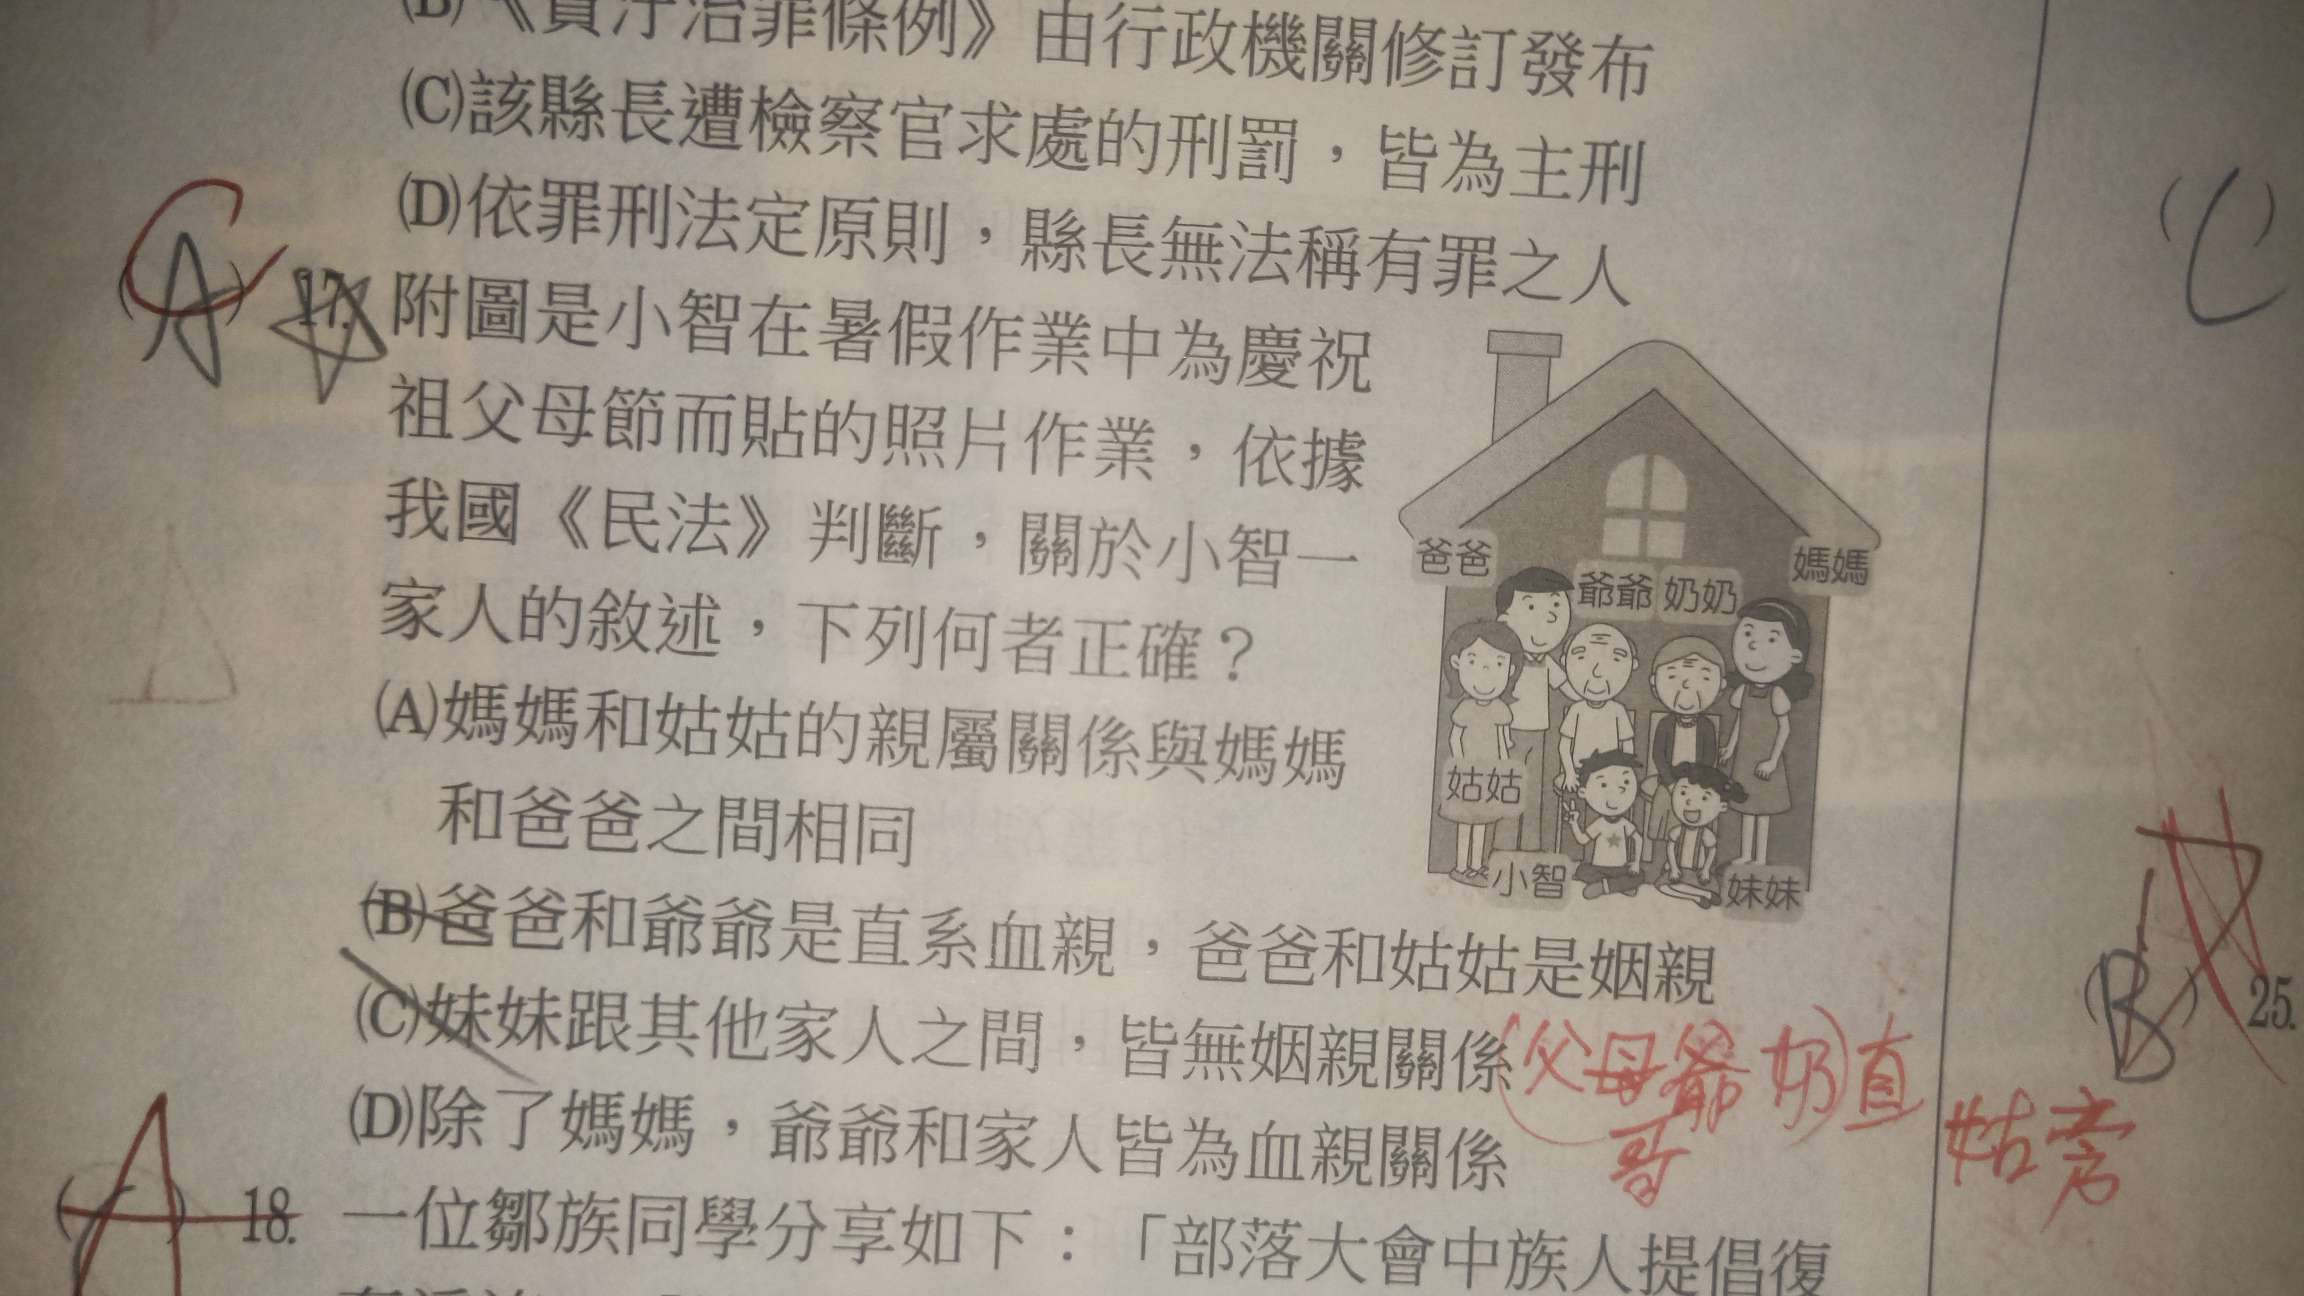 (B)《貪汙治罪條例》由行政機關修訂發布
(C)該縣長遭檢察官求處的刑罰，皆為主刑
(D)依罪刑法定原則，縣長無法稱有罪之人
(A) C 17. 附圖是小智在暑假作業中為慶祝
祖父母節而貼的照片作業，依據
我國《民法》判斷，關於小智一
家人的敘述，下列何者正確？
(A)媽媽和姑姑的親屬關係與媽媽
和爸爸之間相同
(B)爸爸和爺爺是直系血親，爸爸和姑姑是姻親
(C)妹妹跟其他家人之間，皆無姻親關係
(D)除了媽媽，爺爺和家人皆為血親關係
爸爸
爺爺
奶奶
媽媽
姑姑
小智
妹妹
(父母爺奶)直
哥
姑旁
A
18. 一位鄒族同學分享如下：「部落大會中族人提倡復
(C)
(B) 25.